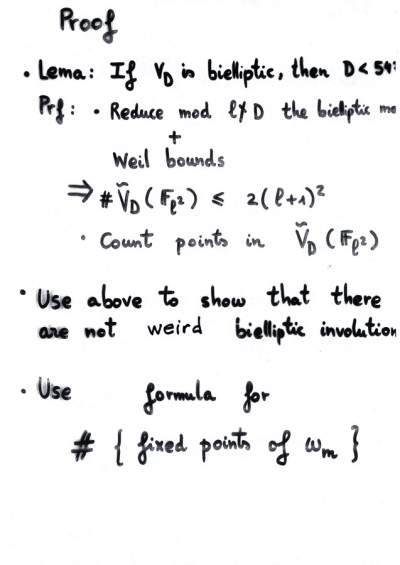 Proof
• Lema: If V_D is bielliptic, then D < 54
Prf: • Reduce mod ℓ∤D the bielliptic
+
Weil bounds
⇒ # Ṽ_D (𝔽_ℓ²) ⩽ 2(ℓ+1)²
• Count points in Ṽ_D (𝔽_ℓ²)
• Use above to show that there
are not weird bielliptic involution
• Use formula for
# { fixed points of ω_m }